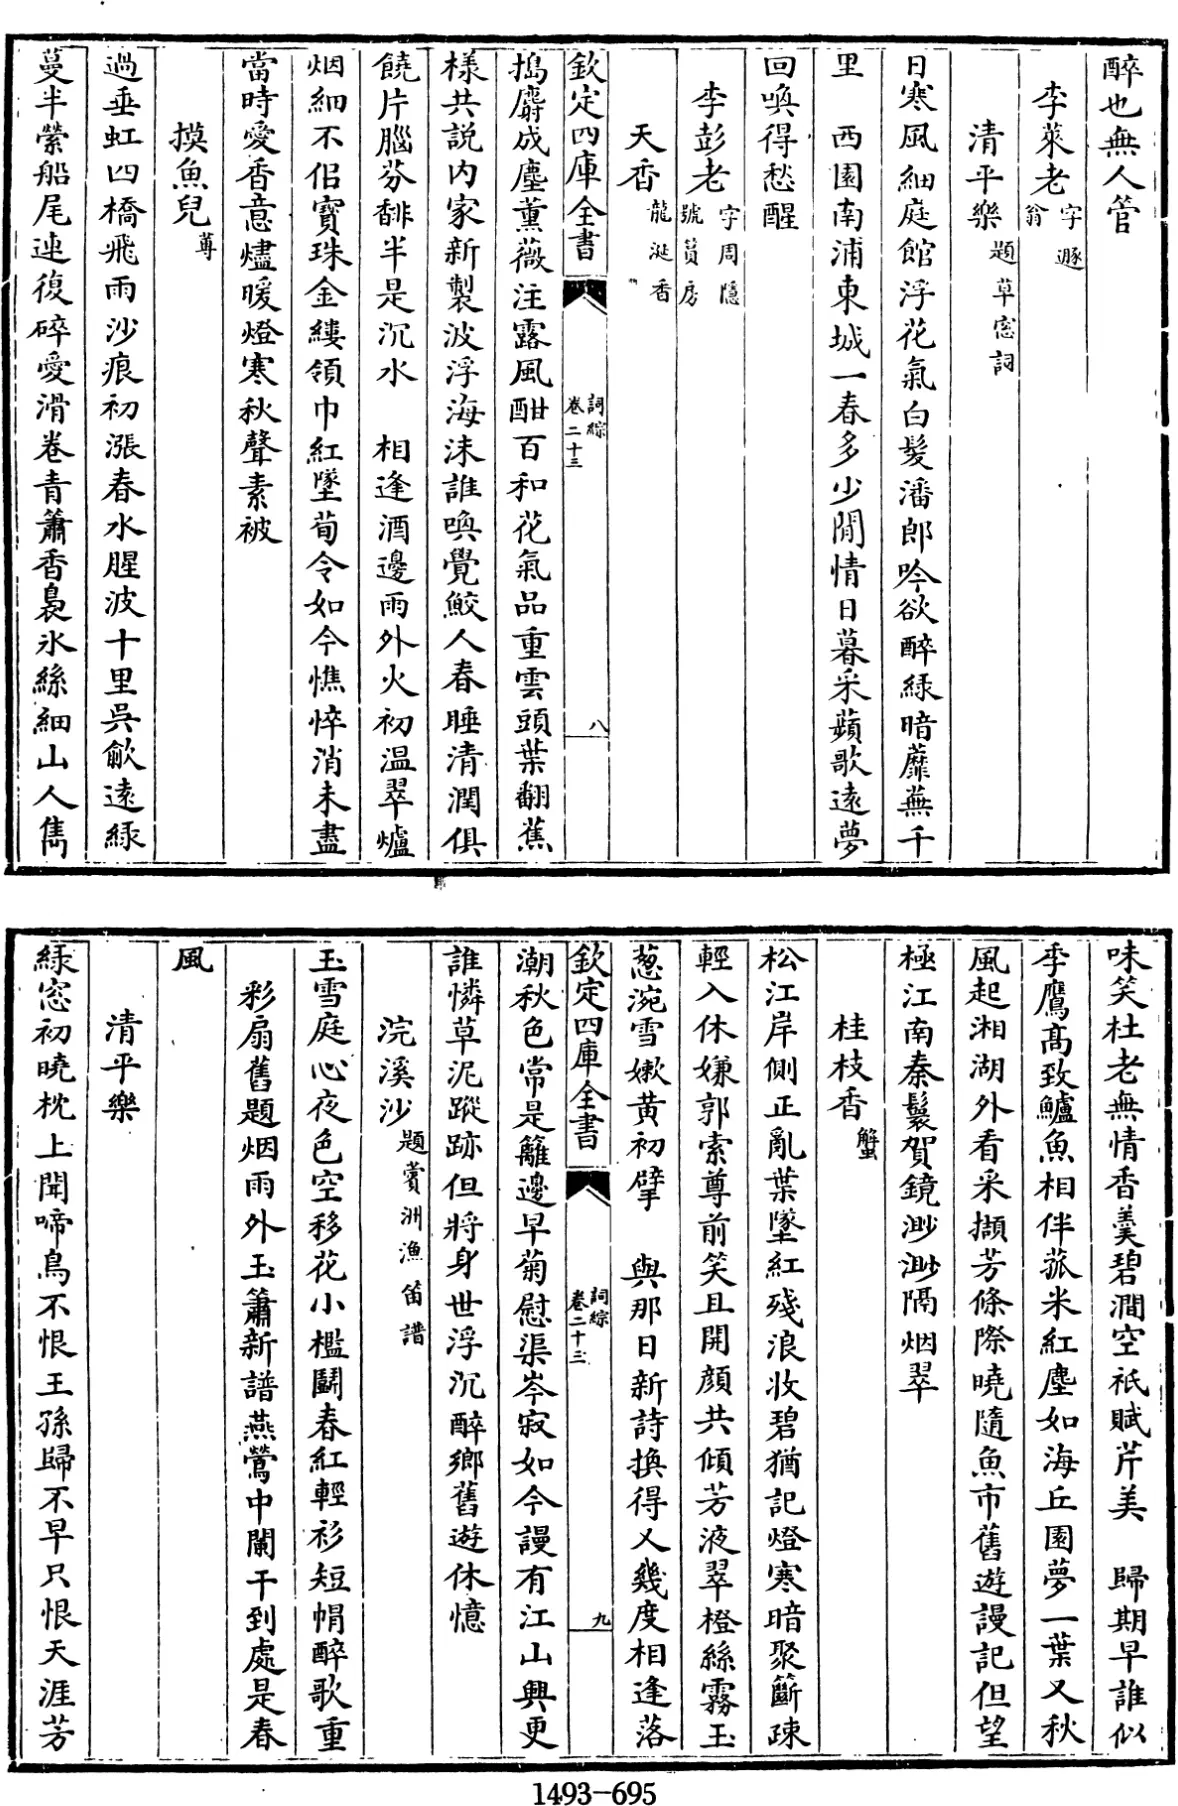 醉也無人管
李萊老字遯翁
清平樂題草窓詞
日寒風細庭館浮花氣白髮潘郎吟欲醉緑暗蘼蕪千
里　西園南浦東城一春多少閒情日暮采蘋歌遠夢
回喚得愁醒
李彭老字周隱號篔房
天香龍涎香
欽定四庫全書
詞綜
卷二十三
八
搗麝成塵薰薇注露風酣百和花氣品重雲頭葉翻蕉
様共説内家新製波浮海沫誰喚覺鮫人春睡清潤俱
饒片腦芬馡半是沉水　相逢酒邊雨外火初温翠爐
烟細不侣寶珠金縷領巾紅墜荀令如今憔悴消未盡
當時愛香意燼暖燈寒秋聲素被
摸魚兒蓴
過垂虹四橋飛雨沙痕初漲春水腥波十里吳歈遠緑
蔓半縈船尾連復碎愛滑卷青簫香裊氷絲細山人雋
味笑杜老無情香羹碧澗空祇賦芹美　歸期早誰似
季鷹髙致鱸魚相伴菰米紅塵如海丘園夢一葉又秋
風起湘湖外看采擷芳條際曉隨魚市舊遊謾記但望
極江南秦鬟賀鏡渺渺隔烟翠
桂枝香蟹
松江岸側正亂葉墜紅殘浪收碧猶記燈寒暗聚籪疎
輕入休嫌郭索尊前笑且開顔共傾芳液翠橙絲霧玉
葱涴雪嫰黄初擘　與那日新詩換得又幾度相逢落
欽定四庫全書
詞綜
卷二十三
九
潮秋色常是籬邊早菊慰渠岑寂如今謾有江山興更
誰憐草泥蹤跡但將身世浮沉醉鄉舊遊休憶
浣溪沙題賞洲漁笛譜
玉雪庭心夜色空移花小檻鬭春紅輕衫短帽醉歌重
彩扇舊題烟雨外玉簫新譜燕鶯中闌干到處是春
風
清平樂
緑窓初曉枕上聞啼鳥不恨王孫歸不早只恨天涯芳
1493-695